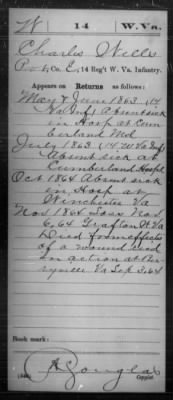 W 14 W.Va.
Charles Wells
Pvt, Co. E, 14 Reg't W. Va. Infantry.
Appears on Returns as follows:
May & June 1863 (14
Va Inf) Absent sick
in Hosp at Cum
berland Md
July 1863 (14 W Va Inf)
Absent sick at
Cumberland Hospl
Oct 1864 Absent sick
in Hosp at
Winchester Va
Nov 1864 Loss Nov
6, 64 Grafton W Va
Died from effects
of a wound recd
in action at Ber
ryville Va Sep 3, 64
Book mark:
Douglas
Copyist.